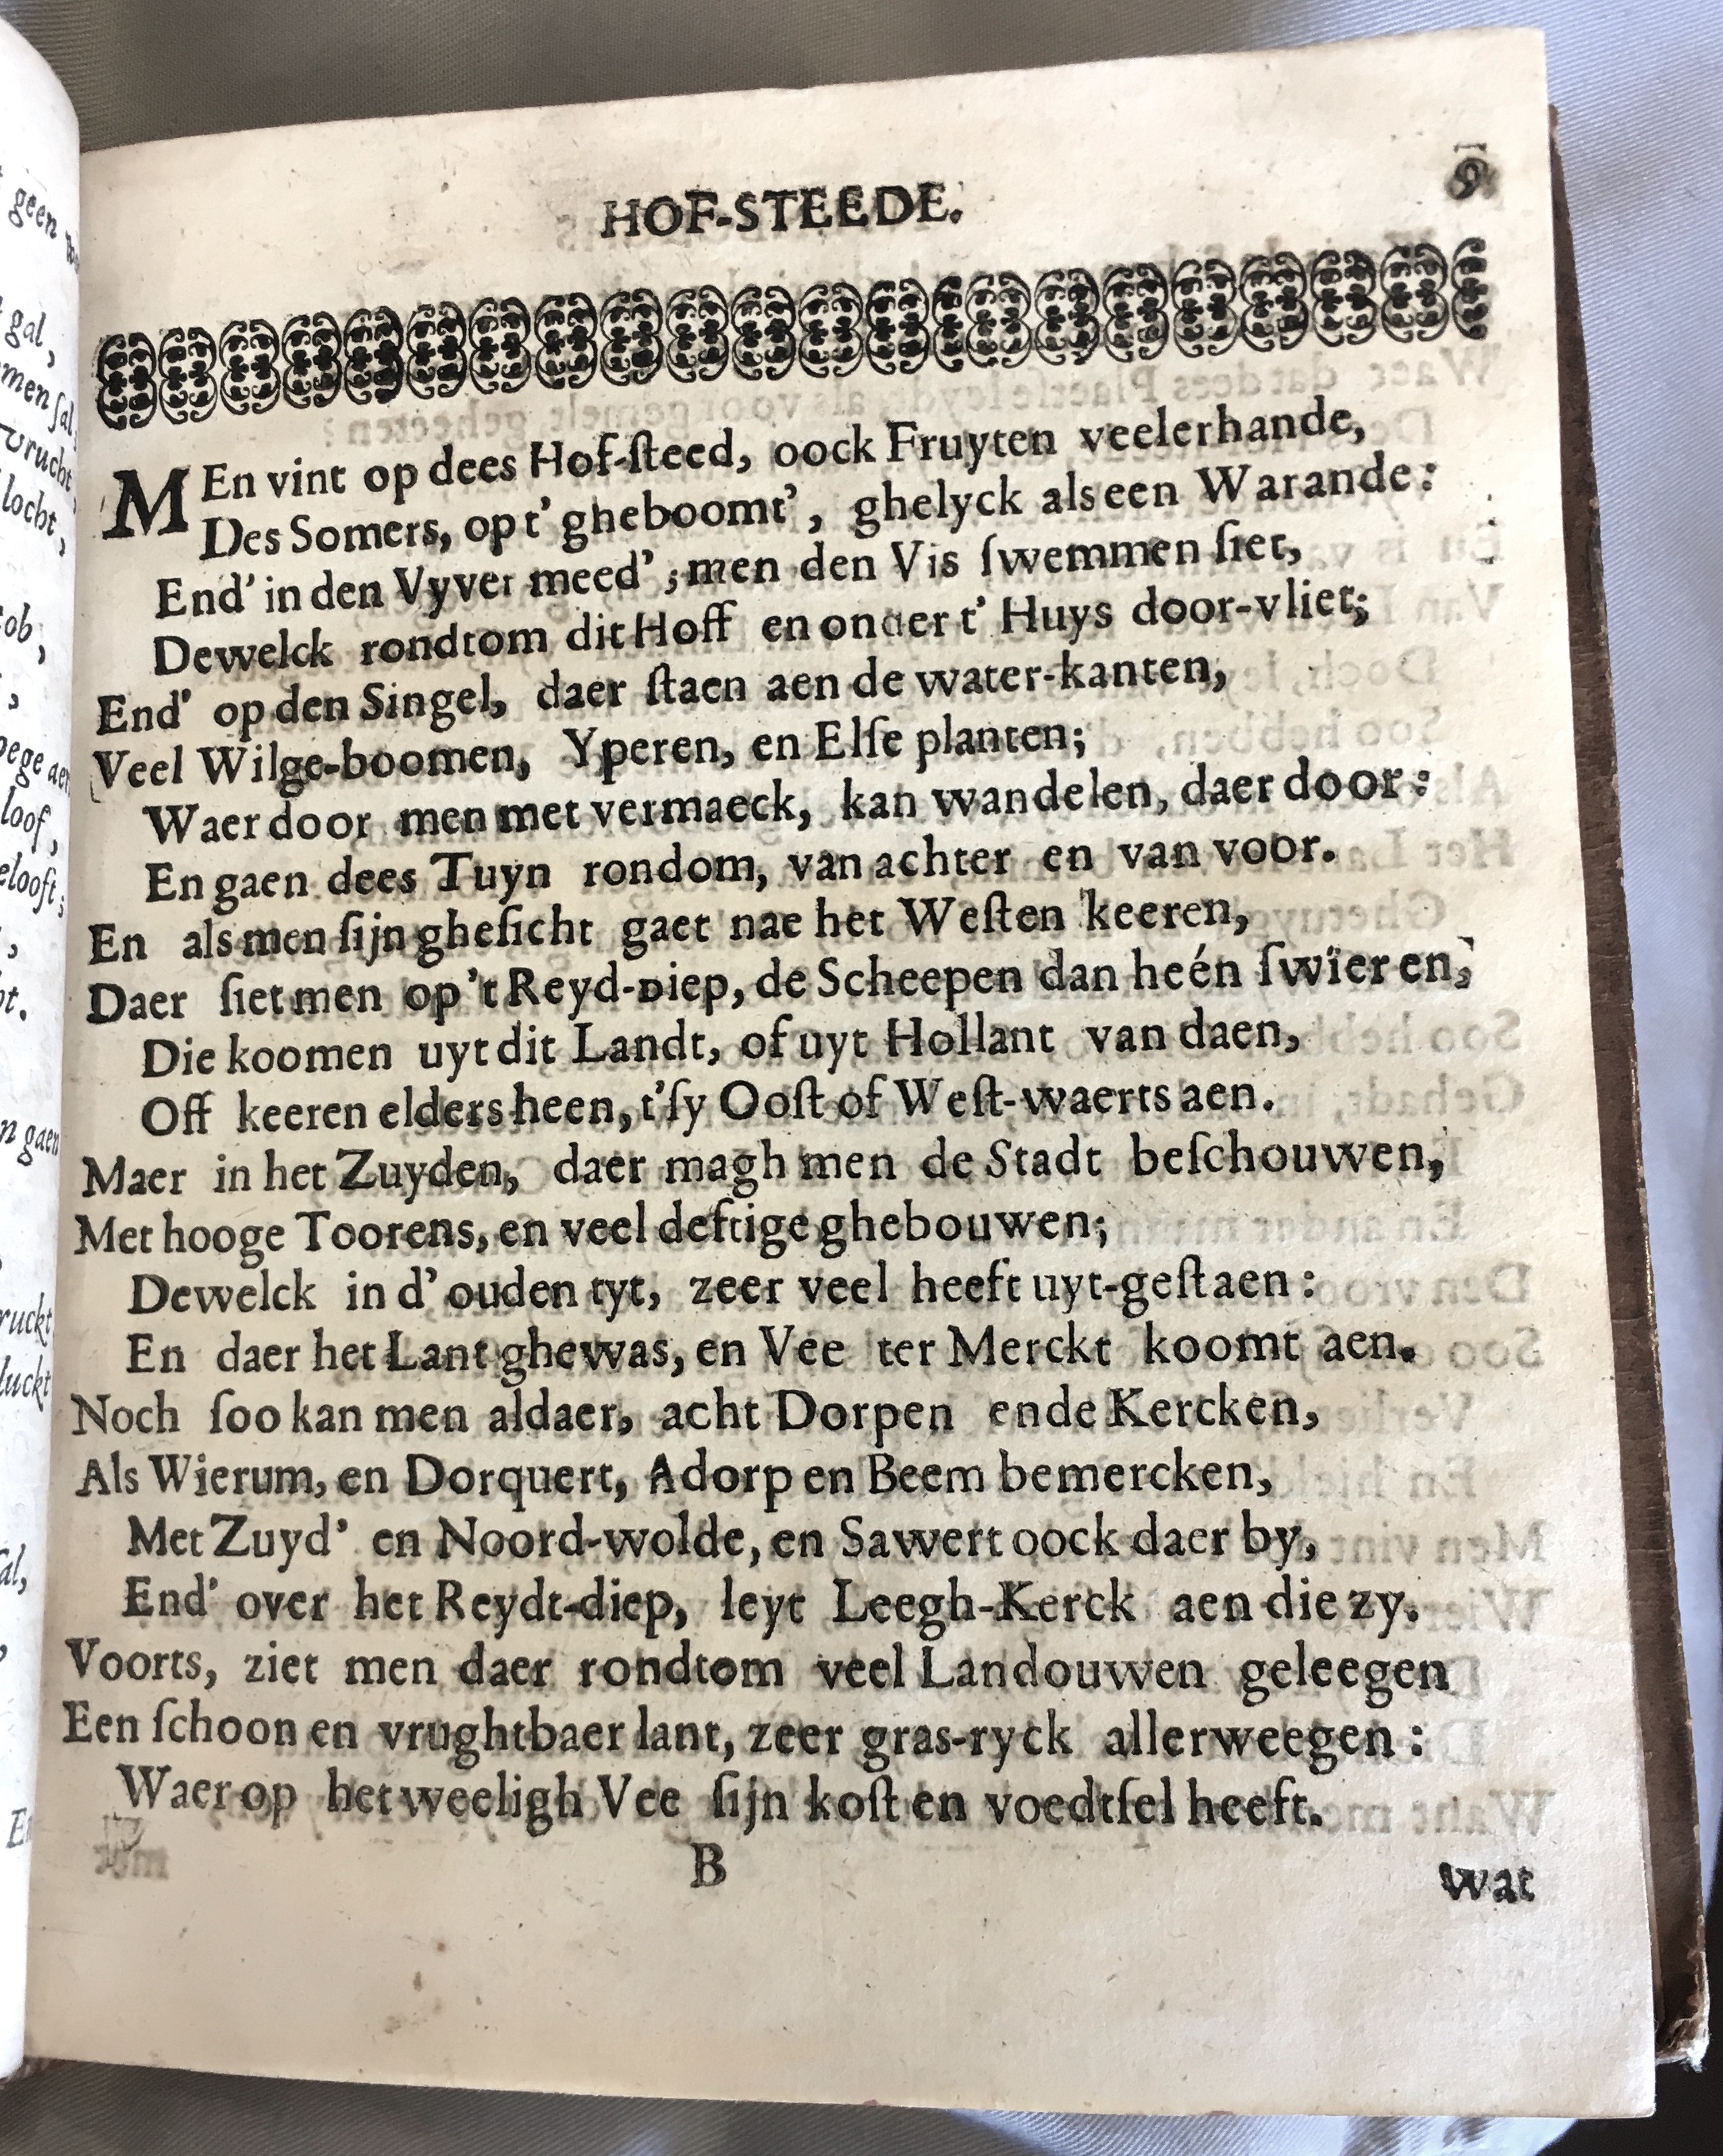 HOF-STEEDE. 9
MEn vint op dees Hof-ſteed, oock Fruyten veelerhande,
Des Somers, op t' gheboomt', ghelyck als een Warande:
End' in den Vyver meed'; men den Vis ſwemmen ſiet,
Dewelck rondtom dit Hoff en onder t' Huys door-vliet;
End' op den Singel, daer ſtaen aen de water-kanten,
Veel Wilge-boomen, Yperen, en Elſe planten;
Waer door men met vermaeck, kan wandelen, daer door:
En gaen dees Tuyn rondom, van achter en van voor.
En als men ſijn gheſicht gaet nae het Weſten keeren,
Daer ſiet men op 't Reyd-diep, de Scheepen dan heén ſwieren,
Die koomen uyt dit Landt, of uyt Hollant van daen,
Off keeren elders heen, t'ſy Ooſt of Weſt-waerts aen.
Maer in het Zuyden, daer magh men de Stadt beſchouwen,
Met hooge Toorens, en veel deftige ghebouwen;
Dewelck in d' ouden tyt, zeer veel heeft uyt-geſtaen:
En daer het Lant ghewas, en Vee ter Merckt koomt aen.
Noch ſoo kan men aldaer, acht Dorpen ende Kercken,
Als Wierum, en Dorquert, Adorp en Beem bemercken,
Met Zuyd' en Noord-wolde, en Sawert oock daer by,
End' over het Reydt-diep, leyt Leegh-Kerck aen die zy.
Voorts, ziet men daer rondtom veel Landouwen geleegen
Een ſchoon en vrughtbaer lant, zeer gras-ryck allerweegen:
Waer op het weeligh Vee ſijn koſt en voedtſel heeft.
B wat